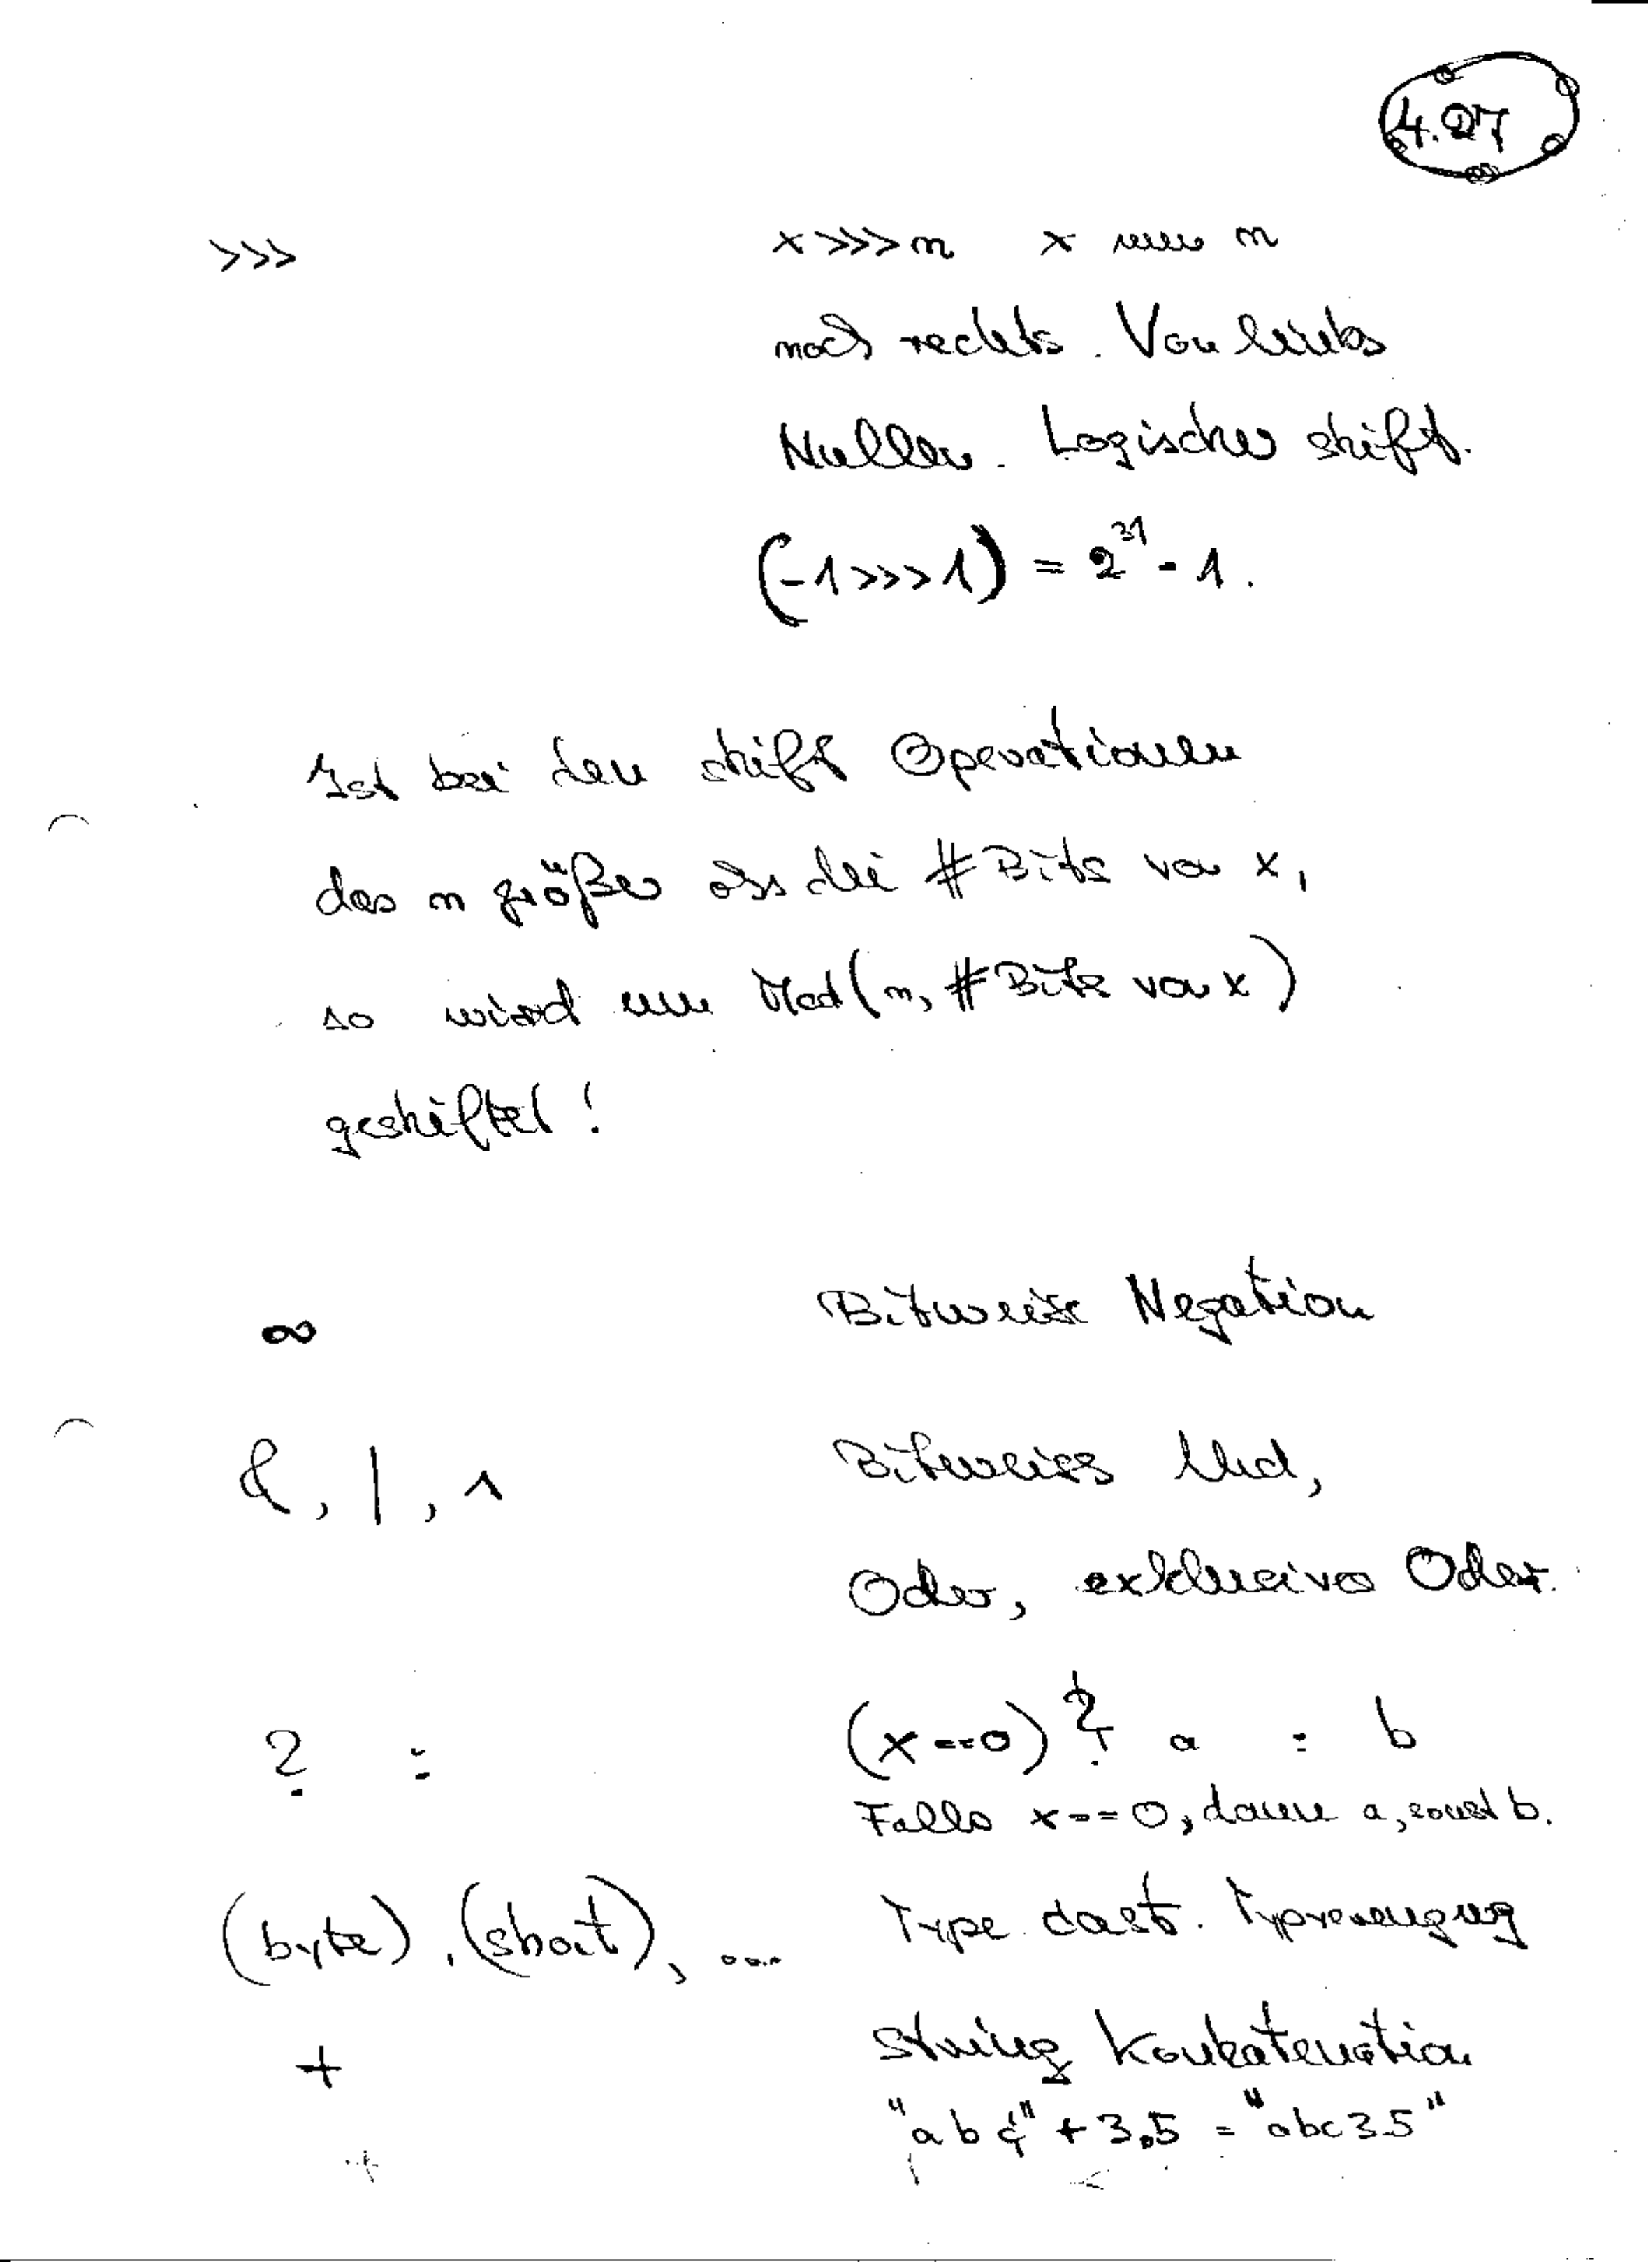 4.27
>>> x>>>m x um m
nach rechts. Von links
Nullen. Logischer shift.
(-1>>>1) = 2^31 - 1.
Ist bei den shift Operationen
das m größer als die # Bits von x,
so wird um Mod(m, # Bits von x)
geshiftet!
~ Bitweise Negation
&, |, ^ Bitweises Und,
Oder, exklusives Oder.
? : (x==0) ? a : b
Falls x==0, dann a, sonst b.
(byte), (short), ... Type cast. Typerzeugung
+ String Konkatenation
"abc" + 3.5 = "abc3.5"